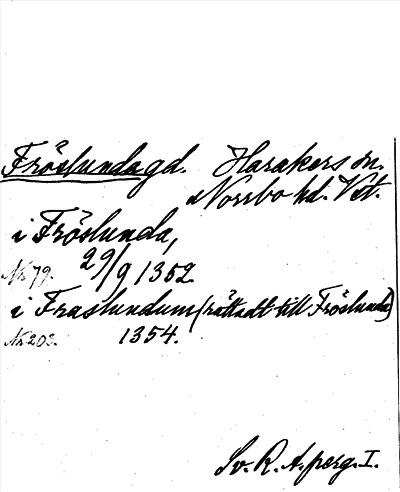 Fröslunda gd. Harakers sn.
Norrbo hd. Vst.
i Fröslunda,
No 79. 29/9 1352.
i Fraslundum (rättadt till Fröslunda)
No 203. 1354.
Sv. R. A. perg. I.